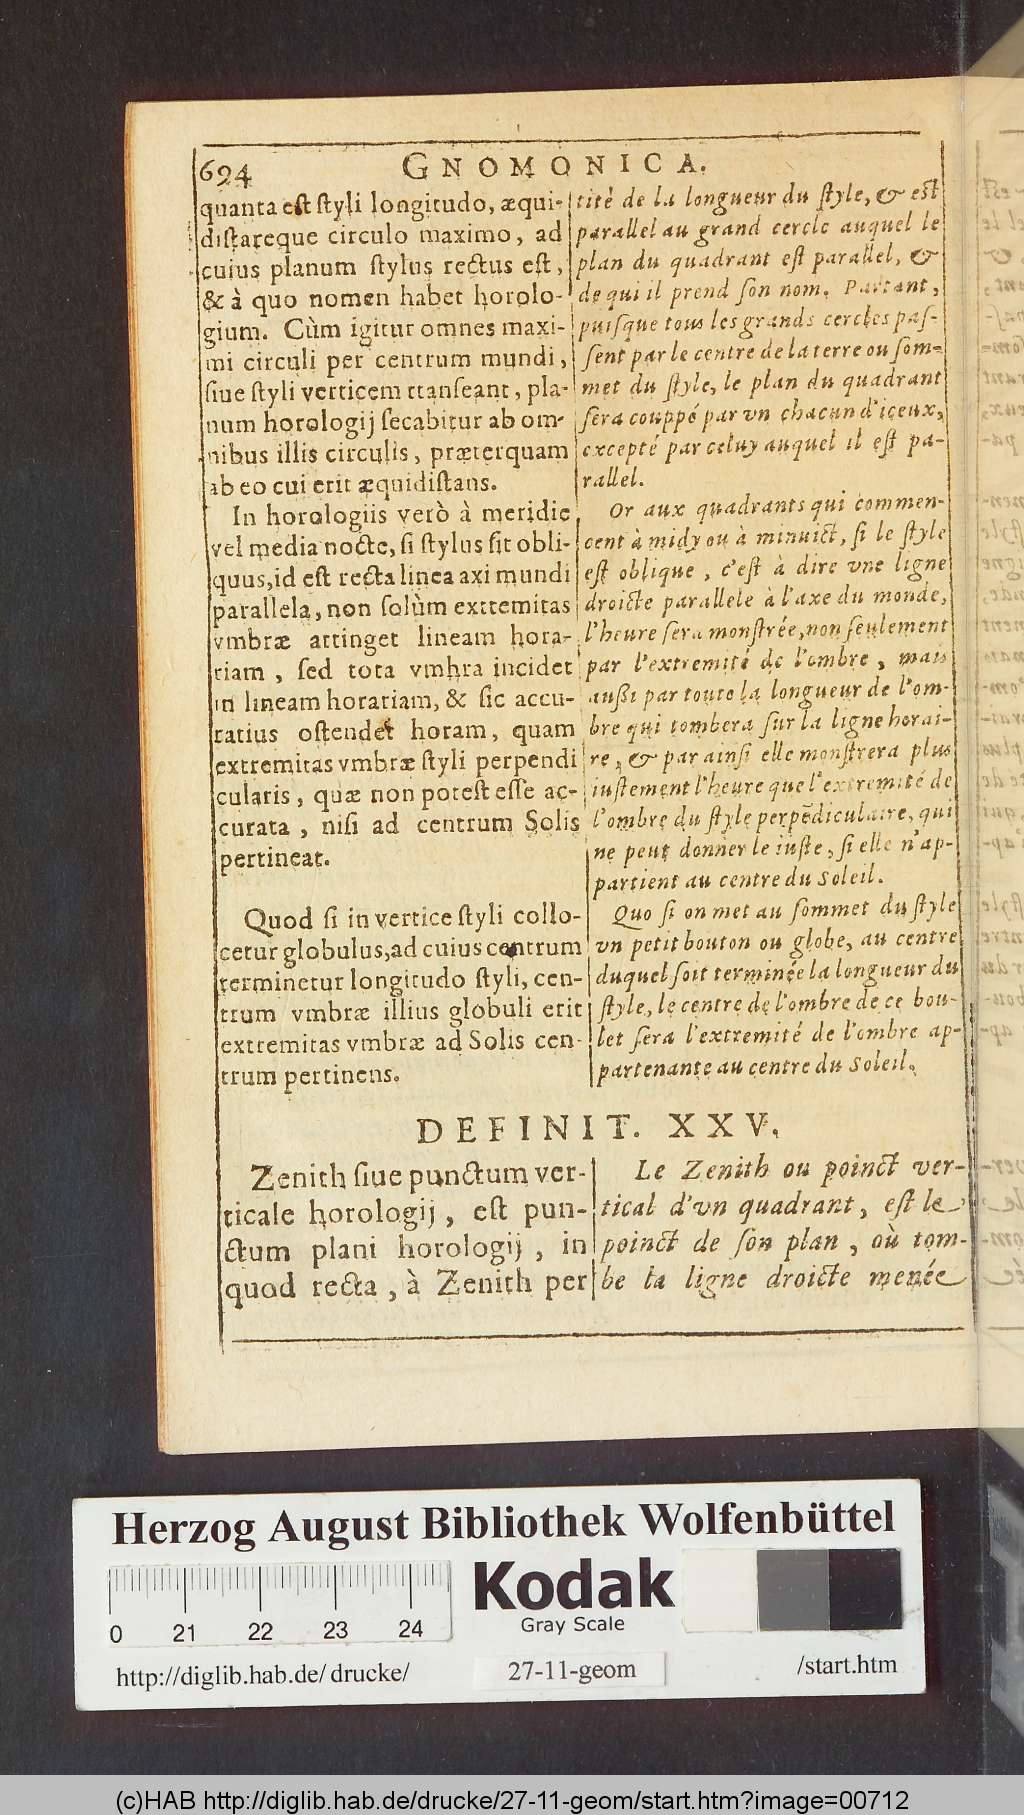 694
GNOMONICA.
quanta est styli longitudo, æqui-
distareque circulo maximo, ad
cuius planum stylus rectus est,
& à quo nomen habet horolo-
gium. Cùm igitur omnes maxi-
mi circuli per centrum mundi,
siue styli verticem transeant, pla-
num horologij secabitur ab om-
nibus illis circulis, præterquam
ab eo cui erit æquidistans.
In horologiis verò à meridie
vel media nocte, si stylus sit obli-
quus, id est recta linea axi mundi
parallela, non solùm extremitas
vmbræ attinget lineam hora-
riam, sed tota vmbra incidet
in lineam horariam, & sic accu-
ratius ostendet horam, quam
extremitas vmbræ styli perpendi
cularis, quæ non potest esse ac-
curata, nisi ad centrum Solis
pertineat.
Quod si in vertice styli collo-
cetur globulus, ad cuius centrum
terminetur longitudo styli, cen-
trum vmbræ illius globuli erit
extremitas vmbræ ad Solis cen-
trum pertinens.
tité de la longueur du style, & est
parallel au grand cercle auquel le
plan du quadrant est parallel, &
de qui il prend son nom. Partant,
puisque tous les grands cercles pas-
sent par le centre de la terre ou som-
met du style, le plan du quadrant
sera couppé par vn chacun d'iceux,
excepté par celuy auquel il est pa-
rallel.
Or aux quadrants qui commen-
cent à midy ou à minuict, si le style
est oblique, c'est à dire vne ligne
droicte parallele à l'axe du monde,
l'heure sera monstrée, non seulement
par l'extremité de l'ombre, mais
aussi par toute la longueur de l'om-
bre qui tombera sur la ligne horai-
re, & par ainsi elle monstrera plus
iustement l'heure que l'extremité de
l'ombre du style perpēdiculaire, qui
ne peut donner le iuste, si elle n'ap-
partient au centre du Soleil.
Quo si on met au sommet du style
vn petit bouton ou globe, au centre
duquel soit terminée la longueur du
style, le centre de l'ombre de ce bou-
let sera l'extremité de l'ombre ap-
partenante au centre du Soleil.
DEFINIT. XXV.
Zenith siue punctum ver-
ticale horologij, est pun-
ctum plani horologij, in
quod recta, à Zenith per
Le Zenith ou poinct ver-
tical d'vn quadrant, est le
poinct de son plan, où tom-
be la ligne droicte menée
Herzog August Bibliothek Wolfenbüttel
0 21 22 23 24
Kodak
Gray Scale
http://diglib.hab.de/ drucke/
27-11-geom
/start.htm
(c)HAB http://diglib.hab.de/drucke/27-11-geom/start.htm?image=00712